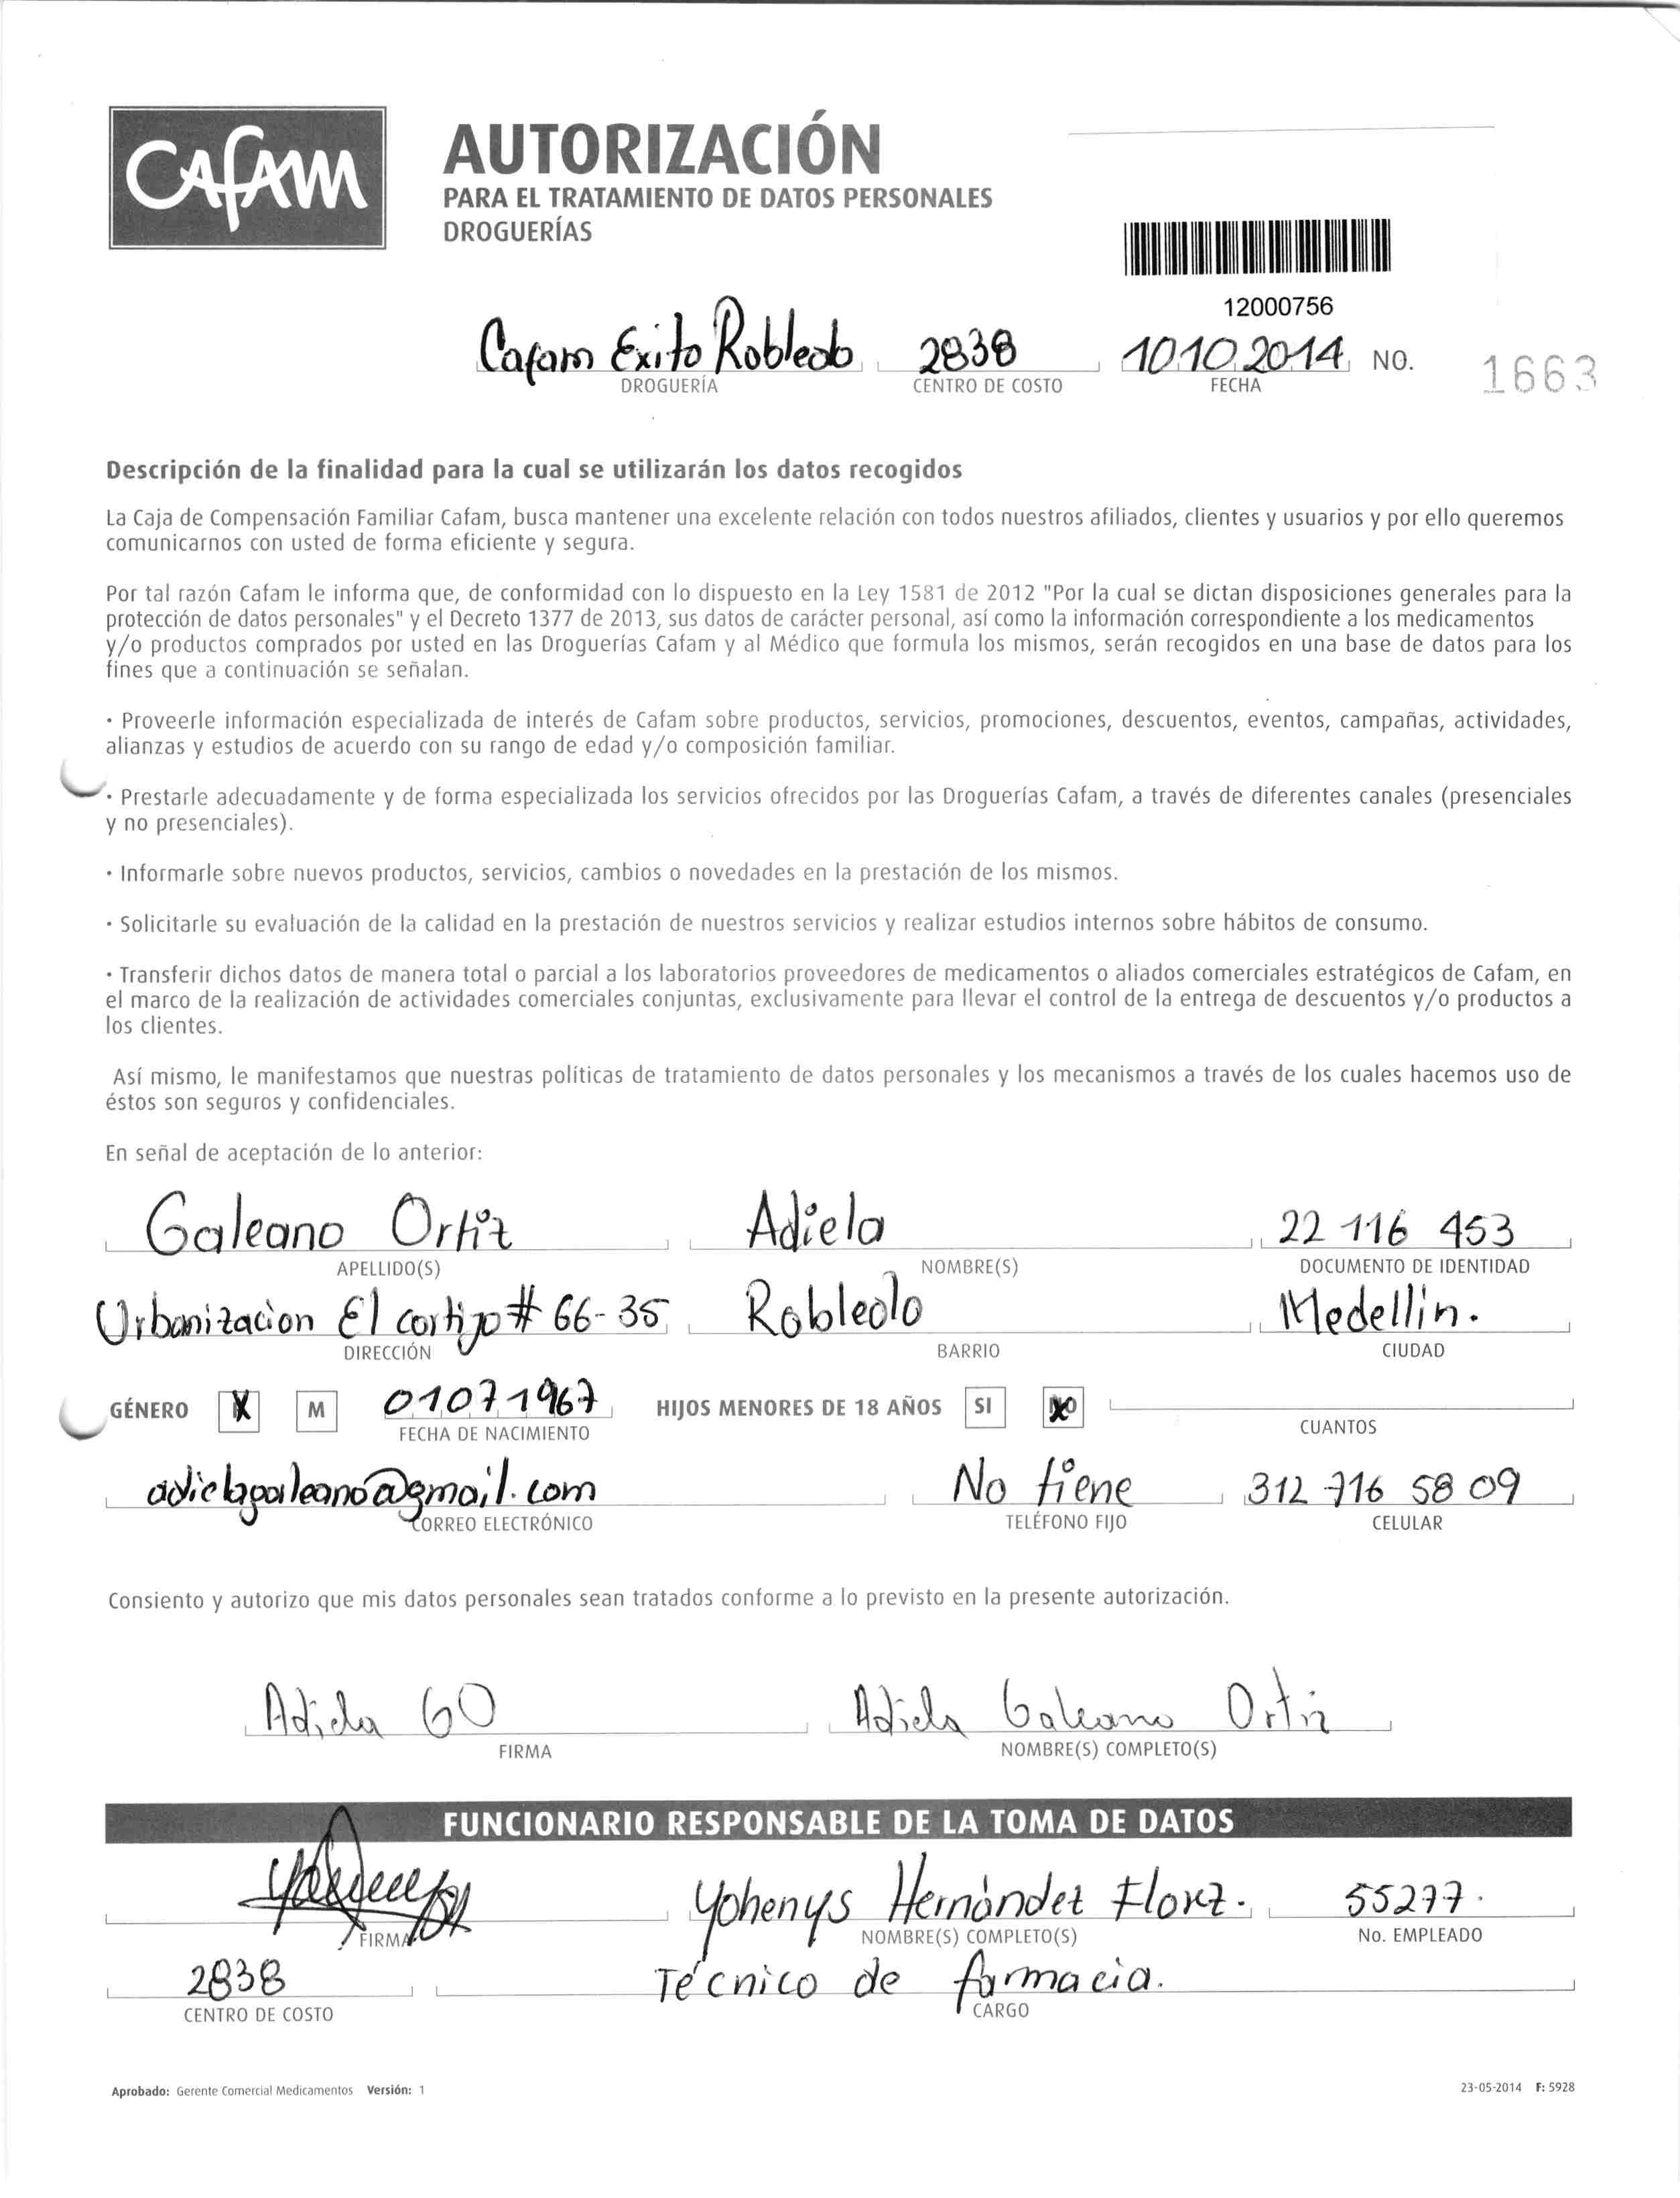 Cafam
AUTORIZACIÓN
PARA EL TRATAMIENTO DE DATOS PERSONALES
DROGUERÍAS
12000756
Cafam Exito Robledo 2838 10 10 2014 NO. 1663
DROGUERÍA CENTRO DE COSTO FECHA
Descripción de la finalidad para la cual se utilizarán los datos recogidos
La Caja de Compensación Familiar Cafam, busca mantener una excelente relación con todos nuestros afiliados, clientes y usuarios y por ello queremos
comunicarnos con usted de forma eficiente y segura.
Por tal razón Cafam le informa que, de conformidad con lo dispuesto en la Ley 1581 de 2012 "Por la cual se dictan disposiciones generales para la
protección de datos personales" y el Decreto 1377 de 2013, sus datos de carácter personal, así como la información correspondiente a los medicamentos
y/o productos comprados por usted en las Droguerías Cafam y al Médico que formula los mismos, serán recogidos en una base de datos para los
fines que a continuación se señalan.
· Proveerle información especializada de interés de Cafam sobre productos, servicios, promociones, descuentos, eventos, campañas, actividades,
alianzas y estudios de acuerdo con su rango de edad y/o composición familiar.
· Prestarle adecuadamente y de forma especializada los servicios ofrecidos por las Droguerías Cafam, a través de diferentes canales (presenciales
y no presenciales).
· Informarle sobre nuevos productos, servicios, cambios o novedades en la prestación de los mismos.
· Solicitarle su evaluación de la calidad en la prestación de nuestros servicios y realizar estudios internos sobre hábitos de consumo.
· Transferir dichos datos de manera total o parcial a los laboratorios proveedores de medicamentos o aliados comerciales estratégicos de Cafam, en
el marco de la realización de actividades comerciales conjuntas, exclusivamente para llevar el control de la entrega de descuentos y/o productos a
los clientes.
Así mismo, le manifestamos que nuestras políticas de tratamiento de datos personales y los mecanismos a través de los cuales hacemos uso de
éstos son seguros y confidenciales.
En señal de aceptación de lo anterior:
Galeano Ortiz Adiela 22 116 453
APELLIDO(S) NOMBRE(S) DOCUMENTO DE IDENTIDAD
Urbanizacion El cortijo # 66-35 Robledo Medellin.
DIRECCIÓN BARRIO CIUDAD
GÉNERO X M 01071967 HIJOS MENORES DE 18 AÑOS SI NO
FECHA DE NACIMIENTO CUANTOS
adielagaleano@gmail.com No tiene 312 716 58 09
CORREO ELECTRÓNICO TELÉFONO FIJO CELULAR
Consiento y autorizo que mis datos personales sean tratados conforme a lo previsto en la presente autorización.
Adiela GO Adiela Galeano Ortiz
FIRMA NOMBRE(S) COMPLETO(S)
FUNCIONARIO RESPONSABLE DE LA TOMA DE DATOS
Yohenys Hernández Florez. 55277.
FIRMA NOMBRE(S) COMPLETO(S) No. EMPLEADO
2838 Técnico de farmacia.
CENTRO DE COSTO CARGO
Aprobado: Gerente Comercial Medicamentos Versión: 1 23-05-2014 F: 5928